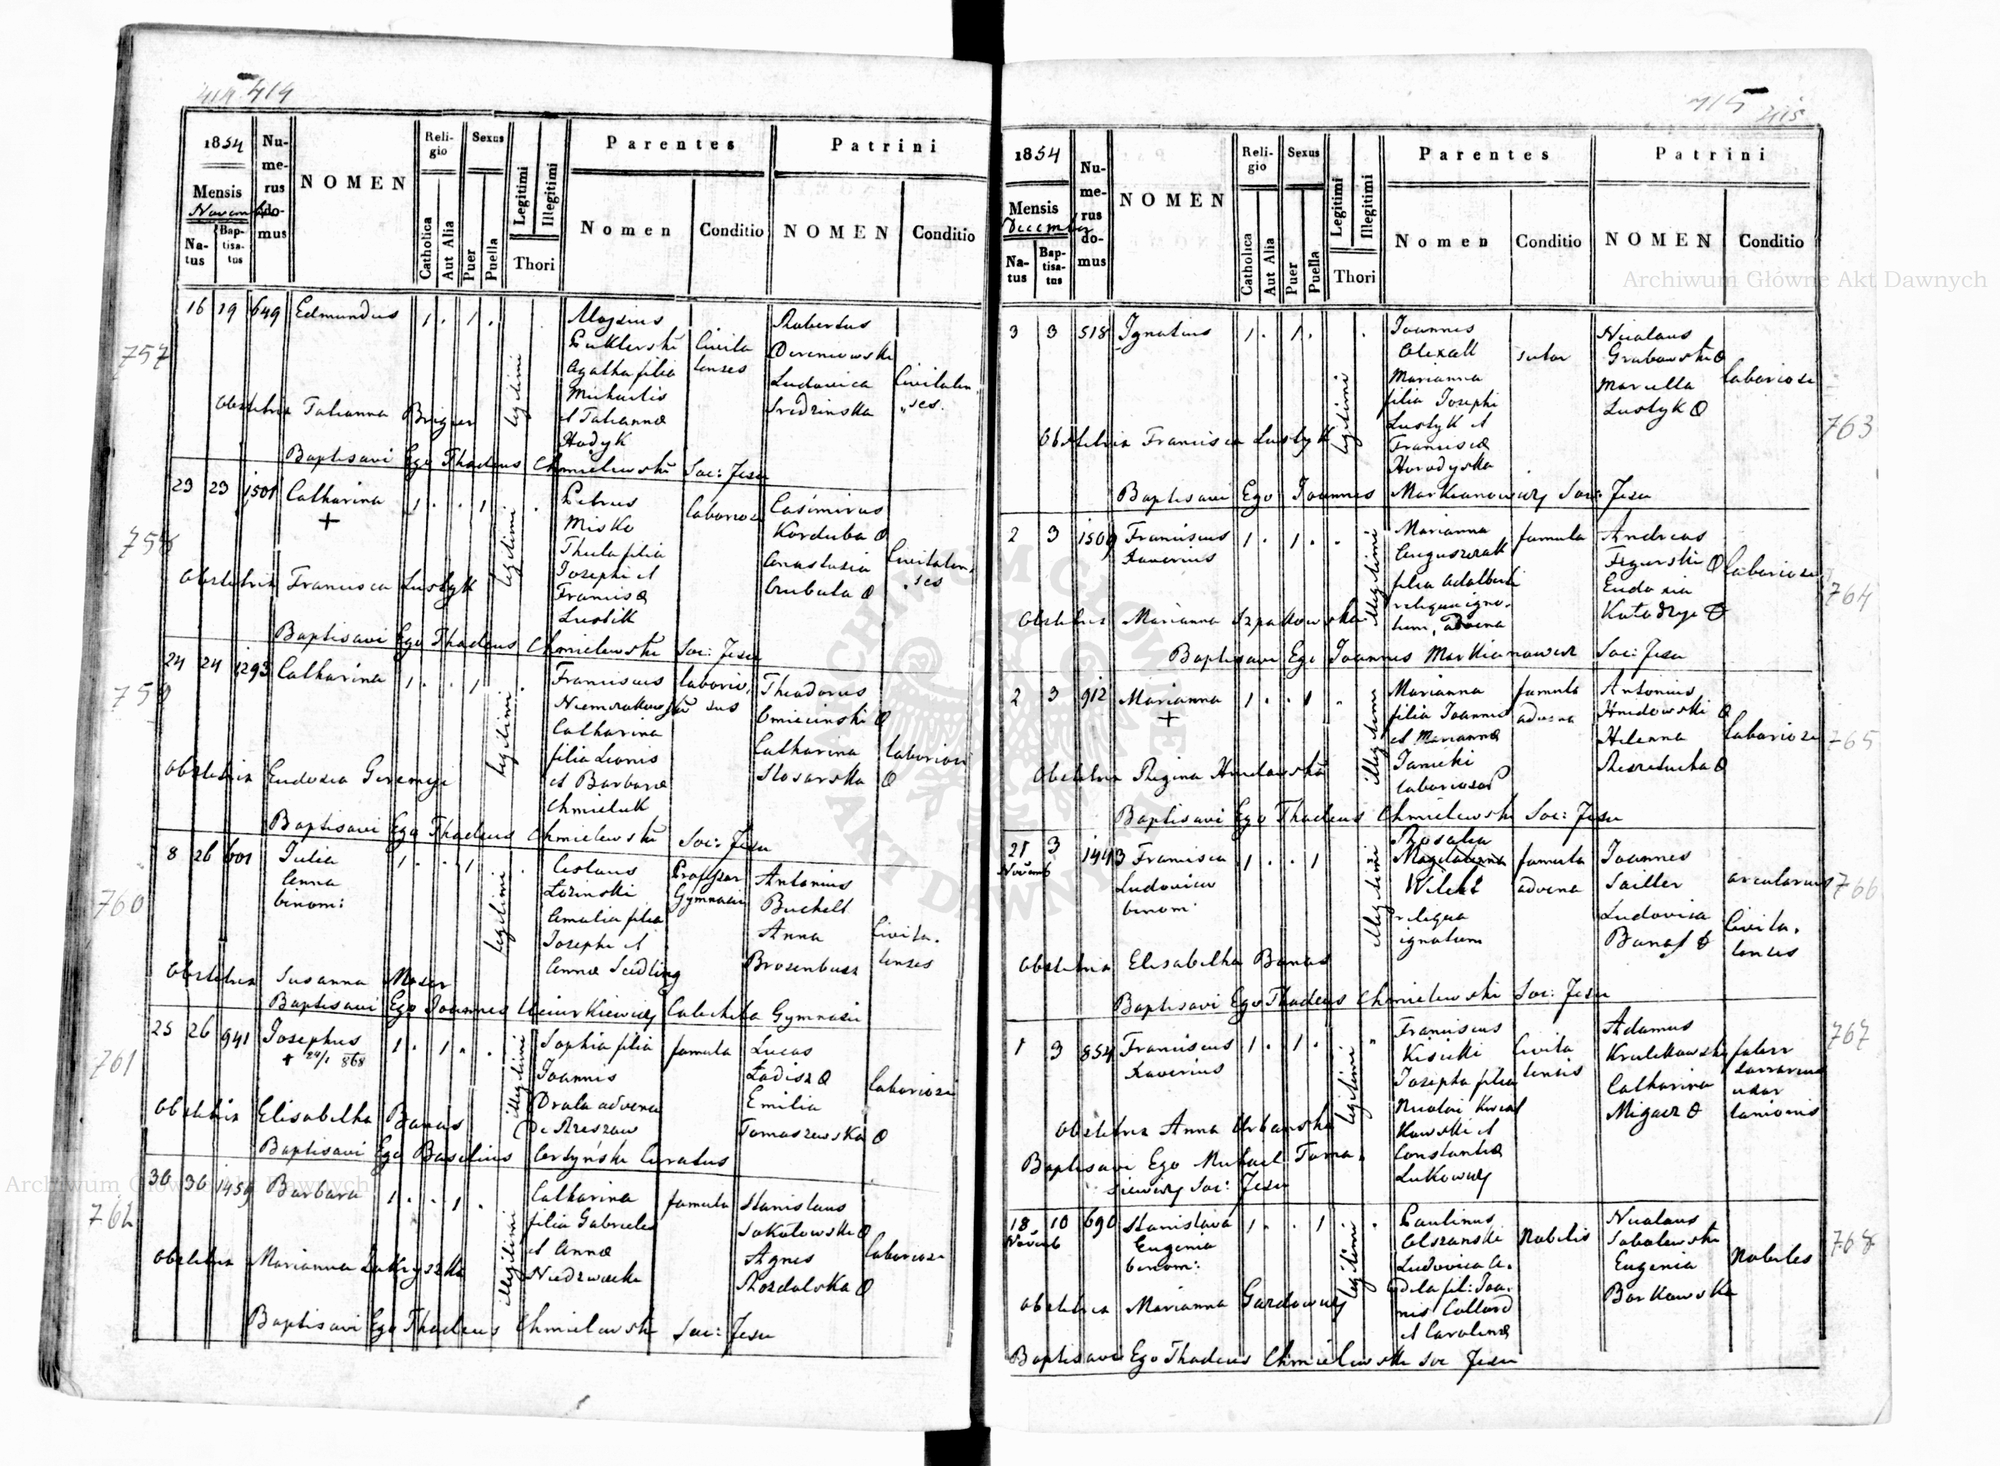 414 414
1854
Mensis
Novemb
Na-
tus
Bap-
tisa-
tus
Nu-
me-
rus
do-
mus
NOMEN
Reli-
gio
Catholica
Aut Alia
Sexus
Puer
Puella
Legitimi
Illegitimi
Thori
Parentes
Nomen
Conditio
Patrini
NOMEN
Conditio
757
16 19 649 Edmundus 1 . 1 .
legitimi
Aloysius
Agatha filia
Michaelis
et Tatianna
Hodyk
Civita
tenses
Robertus
Ludovica
Sredzinska
Civitaten
ses.
Obstetrix Tatianna
Baptisavi Ego Thadeus Chmielewski Soc: Jesu
23 23 1501 Catharina 1 . . 1 .
+
legitimi
Petrus
Misko
Thecla filia
Josephi et
Francisca
Lustik
laboriosi
Casimirus
Korduba
Anastasia
Civitaten
ses
Obstetrix Francisca Lustyk
Baptisavi Ego Thadeus Chmielewski Soc: Jesu
759
24 24 1293 Catharina 1 . . 1 .
legitimi
Franciscus
Catharina
filia Leonis
et Barbara
Chmieluk
laborio
sus
Theodorus
Catharina
Slosarska
laboriosi
Obstetrix Eudoxia Geremyj
Baptisavi Ego Thadeus Chmielewski Soc: Jesu
760
8 26 601 Julia 1 . . 1 .
Anna
binom:
legitimi
Lozinski
Amalia filia
Josephi et
Anna Seidling
Professor
Gymnasii
Antonius
Anna
Civita
tenses
Obstetrix Susanna Moser
Baptisavi Ego Joannes Catecheta Gymnasii
761
25 26 941 Josephus 1 . 1 . .
+ 24/1 868
illegitimi
Sophia filia
Joannis
Drala advena
De Rzeszow
famula
Lucas
Emilia
Tomaszewska
laboriosi
Obstetrix Elisabetha Banas
Baptisavi Ego Basilius Curatus
762
30 30 1459 Barbara 1 . . 1 .
illegitimi
Catharina
filia Gabrielis
et Anna
famula
Stanislaus
Sokolowski
Agnes
Rozdolska
laboriosi
Obstetrix Marianna
Baptisavi Ego Thadeus Chmielewski Soc: Jesu
715 415
1854
Mensis
December
Na-
tus
Bap-
tisa-
tus
Nu-
me-
rus
do-
mus
NOMEN
Reli-
gio
Catholica
Aut Alia
Sexus
Puer
Puella
Legitimi
Illegitimi
Thori
Parentes
Nomen
Conditio
Patrini
NOMEN
Conditio
3 3 518 Ignatius 1 . 1 . .
legitimi
Joannes
Marianna
filia Josephi
Lustyk et
Francisca
Horodyska
sutor
Nicolaus
Grabowski
Marcella
Lustyk
laboriosi
763
Obstetrix Francisca Lustyk
Baptisavi Ego Joannes Markianowicz Soc: Jesu
2 3 1509 Franciscus 1 . 1 . .
Xaverius
illegitimi
Marianna
filia Adalberti
reliqua igno-
tum, advena
famula
Andreas
Eudoxia
laboriosi
764
Obstetrix Marianna Szpakowska
Baptisavi Ego Joannes Markianowicz Soc: Jesu
2 3 912 Marianna 1 . . 1 .
+
illegitimi
Marianna
filia Joannis
et Marianna
Janicki
laboriosor
famula
advena
Antonius
Hnidowski
Helena
laboriosi
765
Obstetrix Regina Hnidowska
Baptisavi Ego Thadeus Chmielewski Soc: Jesu
21 3 1443 Francisca 1 . . 1
Novemb
Ludovica
binom:
illegitimi
Rosalia
Magdalena
reliqua
ignotum
famula
advena
Joannes
Sailler
Ludovica
Banas
arcularius
Civita
tenses
766
Obstetrix Elisabetha Banas
Baptisavi Ego Thadeus Chmielewski Soc: Jesu
1 3 854 Franciscus 1 . 1 .
Xaverius
legitimi
Franciscus
Kisicki
Josepha filia
Nicolai Kwiat
kowski et
Constantia
Lukowicz
Civita
tensis
Adamus
Catharina
Migacz
lanionis
767
Obstetrix Anna Urbanska
Baptisavi Ego Michael Toma
siewicz Soc: Jesu
18 10 690 Stanislava 1 . . 1
Novemb
Eugenia
binom:
legitimi
Paulinus
Olszanski
Ludovica A-
dela fil: Joa-
nis Collard
et Carolina
Nobilis
Nicolaus
Sobolewski
Eugenia
Borkowska
Nobiles
768
Obstetrix Marianna
Baptisavi Ego Thadeus Chmielewski Soc Jesu
Archiwum Główne Akt Dawnych
Archiwum Główne Akt Dawnych
ARCHIWUM GŁÓWNE AKT DAWNYCH